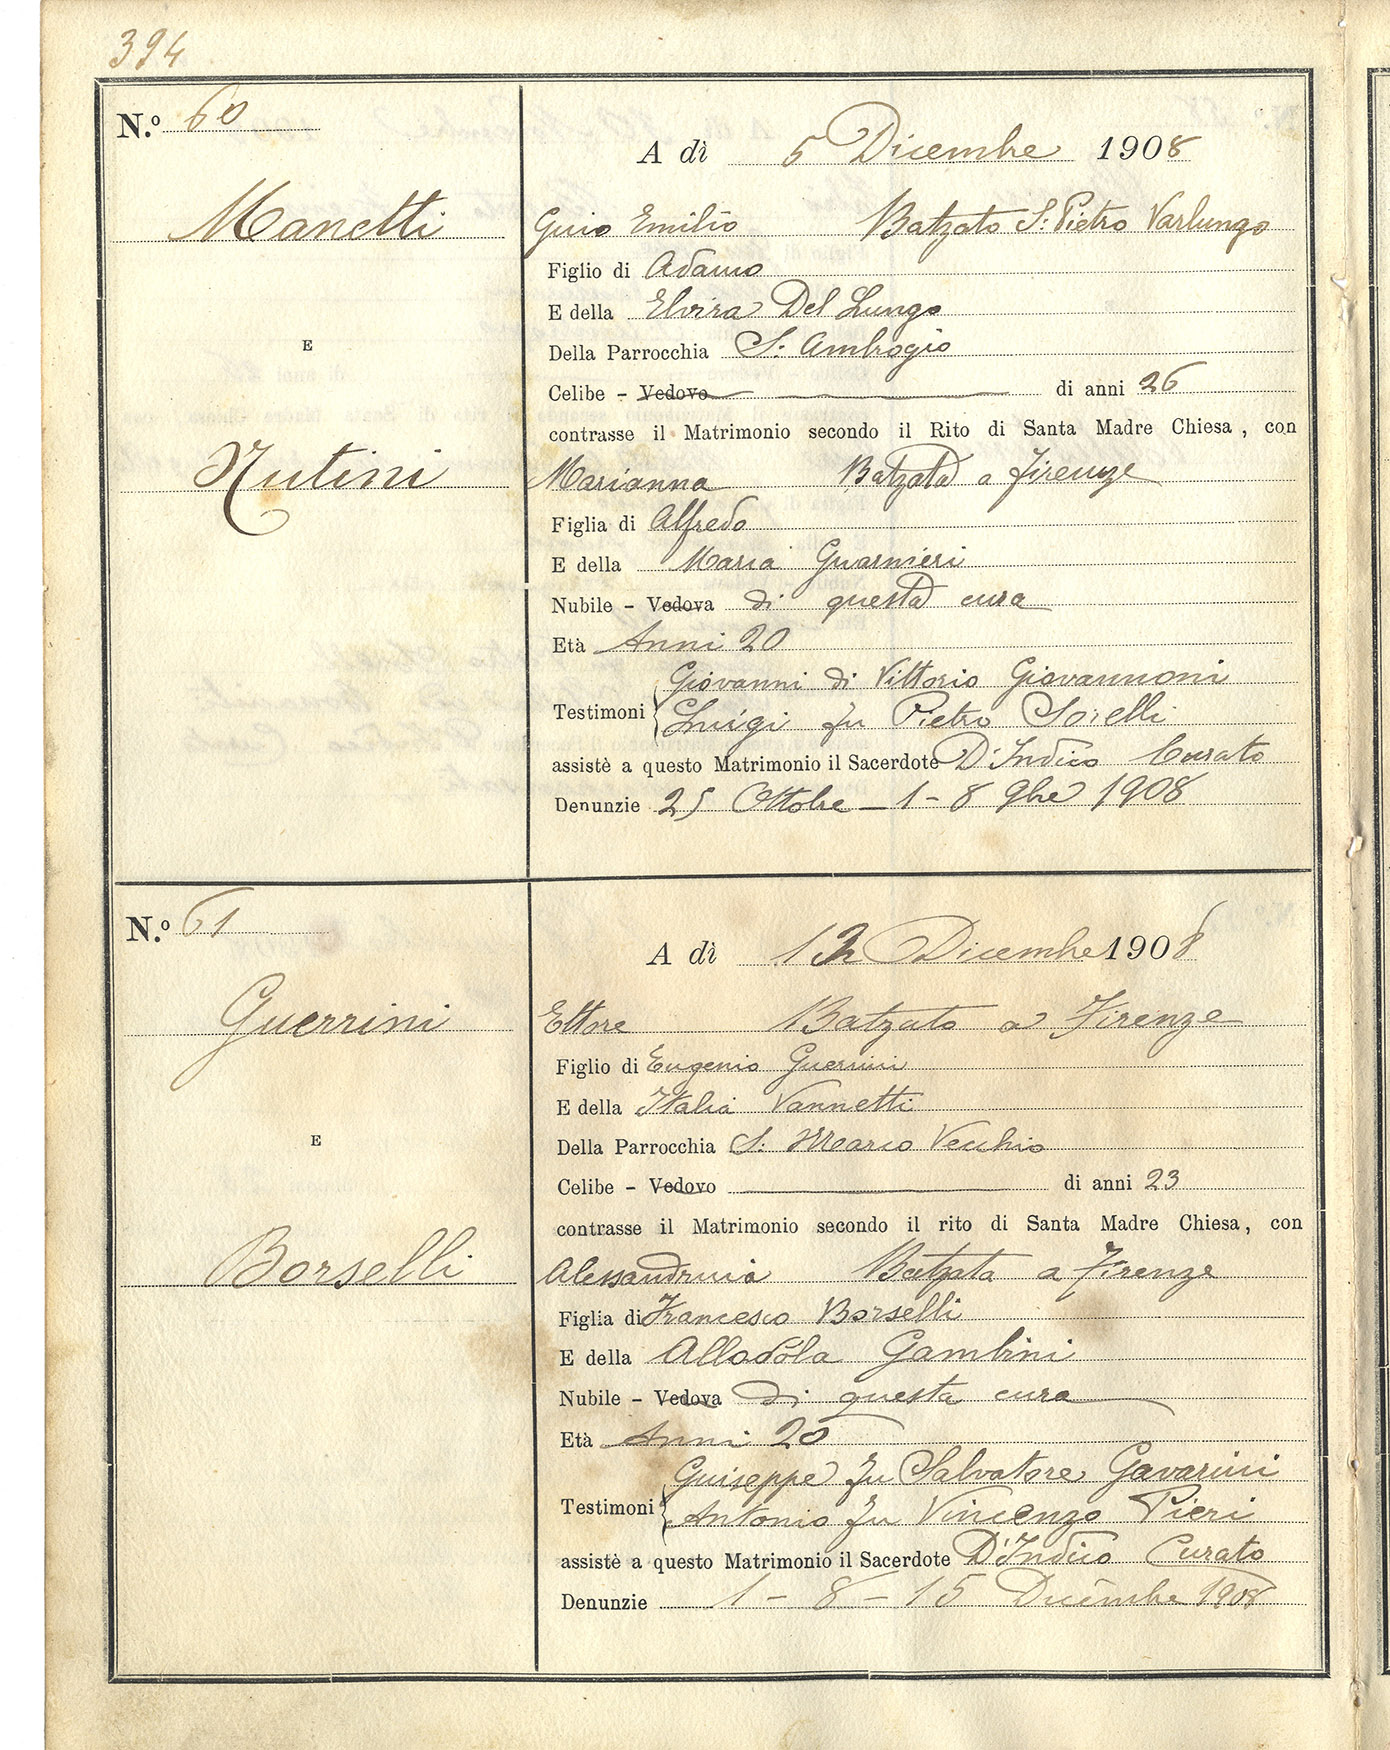 394
N.º 60
A dì 5 Dicembre 1908
Manetti
Guio Emilio Batzato S. Pietro Varlungo
Figlio di Adamo
E della Elvira Del Lungo
E
Della Parrocchia S. Ambrogio
Celibe - Vedovo di anni 26
contrasse il Matrimonio secondo il Rito di Santa Madre Chiesa, con
Nutini
Marianna Batzata a Firenze
Figlia di Alfredo
E della Maria Guarnieri
Nubile - Vedova di questa cura
Età Anni 20
Giovanni di Vittorio Giovannoni
Testimoni Luigi fu Pietro Sorelli
assistè a questo Matrimonio il Sacerdote D'Indico Curato
Denunzie 25 Ottobre - 1 - 8 9bre 1908
N.º 61
A dì 12 Dicembre 1908
Guerrini
Ettore Batzato a Firenze
Figlio di Eugenio Guerrini
E della Italia Vannetti
E
Della Parrocchia S. Marco Vecchio
Celibe - Vedovo di anni 23
contrasse il Matrimonio secondo il rito di Santa Madre Chiesa, con
Borselli
Alessandrina Batzata a Firenze
Figlia di Francesco Borselli
E della Allodola Gambini
Nubile - Vedova di questa cura
Età Anni 20
Guiseppe fu Salvatore Gavarini
Testimoni Antonio fu Vincenzo Pieri
assistè a questo Matrimonio il Sacerdote D'Indico Curato
Denunzie 1 - 8 - 15 Dicembre 1908